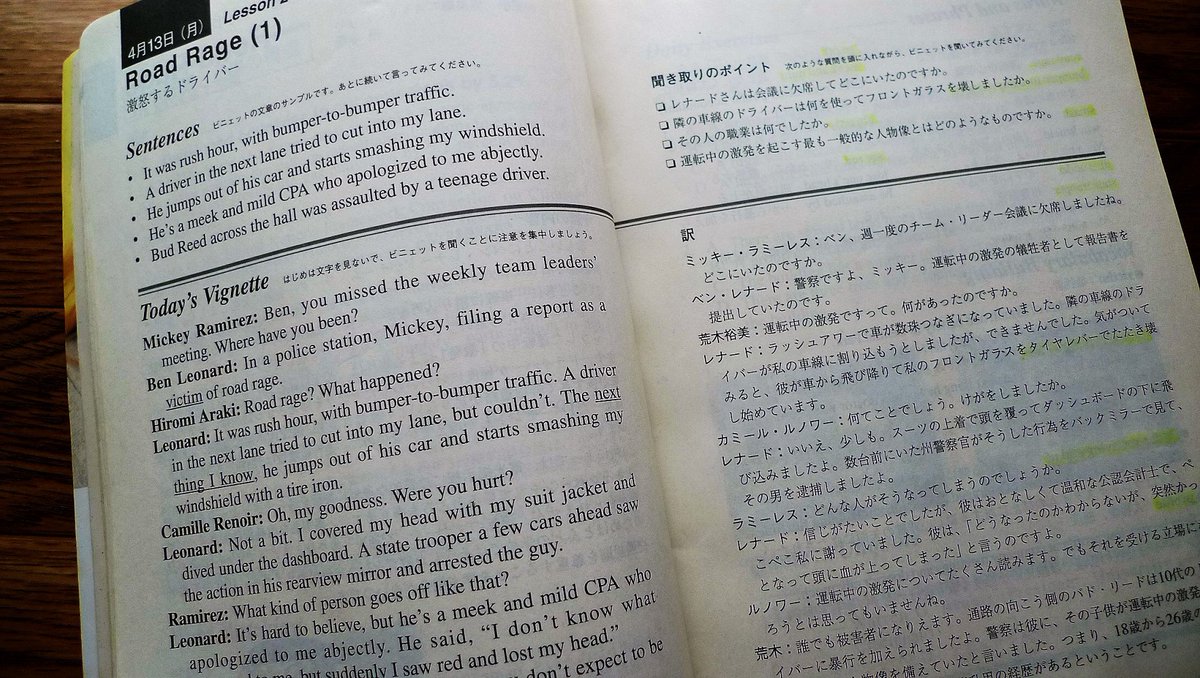 4月13日（月）
Lesson 2
Road Rage (1)
激怒するドライバー
Sentences ビニェットの文章のサンプルです。あとに続いて言ってみてください。
• It was rush hour, with bumper-to-bumper traffic.
• A driver in the next lane tried to cut into my lane.
• He jumps out of his car and starts smashing my windshield.
• He's a meek and mild CPA who apologized to me abjectly.
• Bud Reed across the hall was assaulted by a teenage driver.
Today's Vignette はじめは文字を見ないで、ビニェットを聞くことに注意を集中しましょう。
Mickey Ramirez: Ben, you missed the weekly team leaders'
meeting. Where have you been?
Ben Leonard: In a police station, Mickey, filing a report as a
victim of road rage.
Hiromi Araki: Road rage? What happened?
Leonard: It was rush hour, with bumper-to-bumper traffic. A driver
in the next lane tried to cut into my lane, but couldn't. The next
thing I know, he jumps out of his car and starts smashing my
windshield with a tire iron.
Camille Renoir: Oh, my goodness. Were you hurt?
Leonard: Not a bit. I covered my head with my suit jacket and
dived under the dashboard. A state trooper a few cars ahead saw
the action in his rearview mirror and arrested the guy.
Ramirez: What kind of person goes off like that?
Leonard: It's hard to believe, but he's a meek and mild CPA who
apologized to me abjectly. He said, "I don't know what
to me, but suddenly I saw red and lost my head."
don't expect to be
聞き取りのポイント 次のような質問を頭に入れながら、ビニェットを聞いてみてください。
❏ レナードさんは会議に欠席してどこにいたのですか。
❏ 隣の車線のドライバーは何を使ってフロントガラスを壊しましたか。
❏ その人の職業は何でしたか。
❏ 運転中の激発を起こす最も一般的な人物像とはどのようなものですか。
訳
ミッキー・ラミーレス：ベン、週一度のチーム・リーダー会議に欠席しましたね。
どこにいたのですか。
ベン・レナード：警察ですよ、ミッキー。運転中の激発の犠牲者として報告書を
提出していたのです。
荒木裕美：運転中の激発ですって。何があったのですか。
レナード：ラッシュアワーで車が数珠つなぎになっていました。隣の車線のドラ
イバーが私の車線に割り込もうとしましたが、できませんでした。気がついて
みると、彼が車から飛び降りて私のフロントガラスをタイヤレバーでたたき壊
し始めています。
カミール・ルノワー：何てことでしょう。けがをしましたか。
レナード：いいえ、少しも。スーツの上着で頭を覆ってダッシュボードの下に飛
び込みましたよ。数台前にいた州警察官がそうした行為をバックミラーで見て、
その男を逮捕しましたよ。
ラミーレス：どんな人がそうなってしまうのでしょうか。
レナード：信じがたいことでしたが、彼はおとなしくて温和な公認会計士で、ぺ
こぺこ私に謝っていました。彼は、「どうなったのかわからないが、突然かっ
となって頭に血が上ってしまった」と言うのですよ。
ルノワー：運転中の激発についてたくさん読みます。でもそれを受ける立場に
ろうとは思ってもいませんね。
荒木：誰でも被害者になりえます。通路の向こう側のバド・リードは10代の
イバーに暴行を加えられましたよ。警察は彼に、その子供が運転中の激発
物像を備えていたと言いました。つまり、18歳から26歳の
の経歴があるということです。